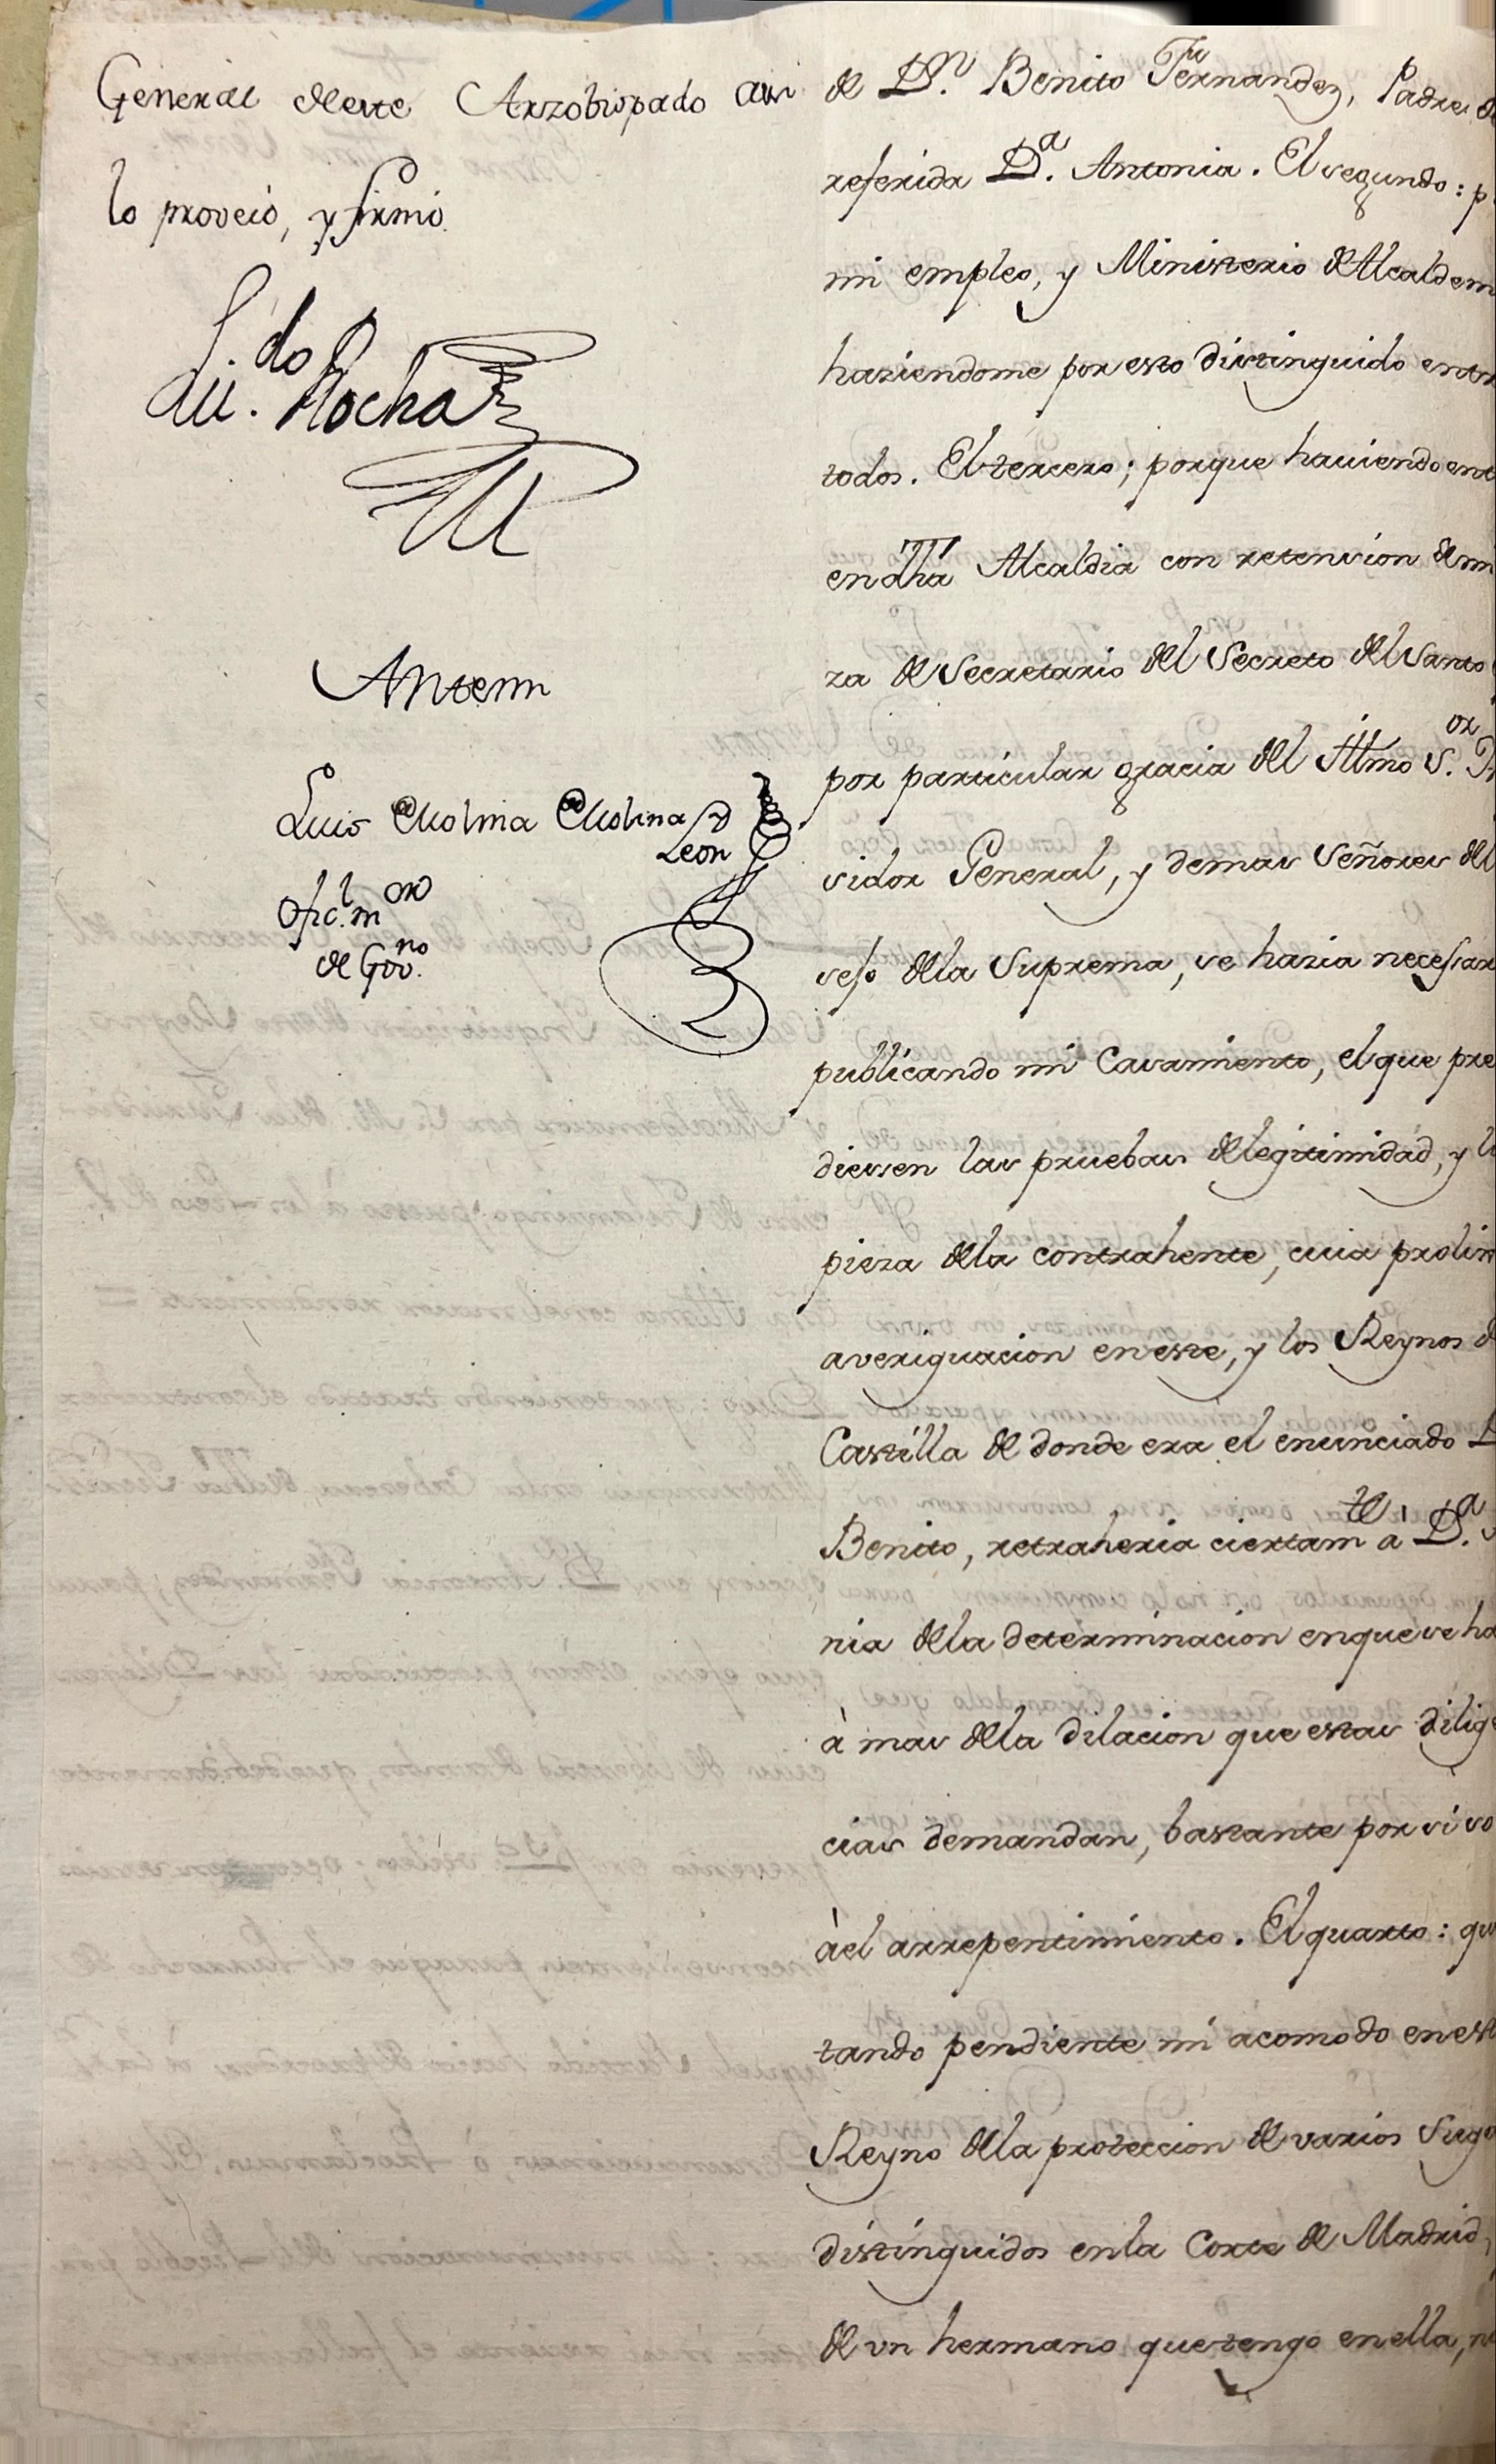 General deeste Arzobispado assi
lo proveió, y firmó.
L.do Rocha
Antemi
Luis Molina Molina y
Leon
Ofic.l m.or
de Gov.no
de D.n Benito Fernandez, Padre de
referida D.a Antonia. El segundo: p
mi empleo, y Ministerio de Alcaldem
haziendome por esto distinguido entr
todos. El tercero; porque haviendo ent
en dha Alcaldia con retencion de mi
za de Secretario del Secreto del Santo
por particular gracia del Illmo S.or
sidor General, y demas Señores del
sejo dela Suprema, se hazia necessar
publicando mi Casamiento, el que pre
diessen las pruebas de legitimidad, y li
pieza dela contrahente, cuia prolix
averiguacion en este, y los Reynos d
Castilla de donde era el enunciado D
Benito, retraheria ciertam.te á D.a
nia dela determinacion en que se ha
à mas dela dilacion que estas dilig
cias demandan, bastante por si so
àel arrepentimiento. El quarto: qu
tando pendiente mi acomodo en est
Reyno dela proteccion de varios Suge
distinguidos enla Corte de Madrid,
de vn hermano que tengo en ella,